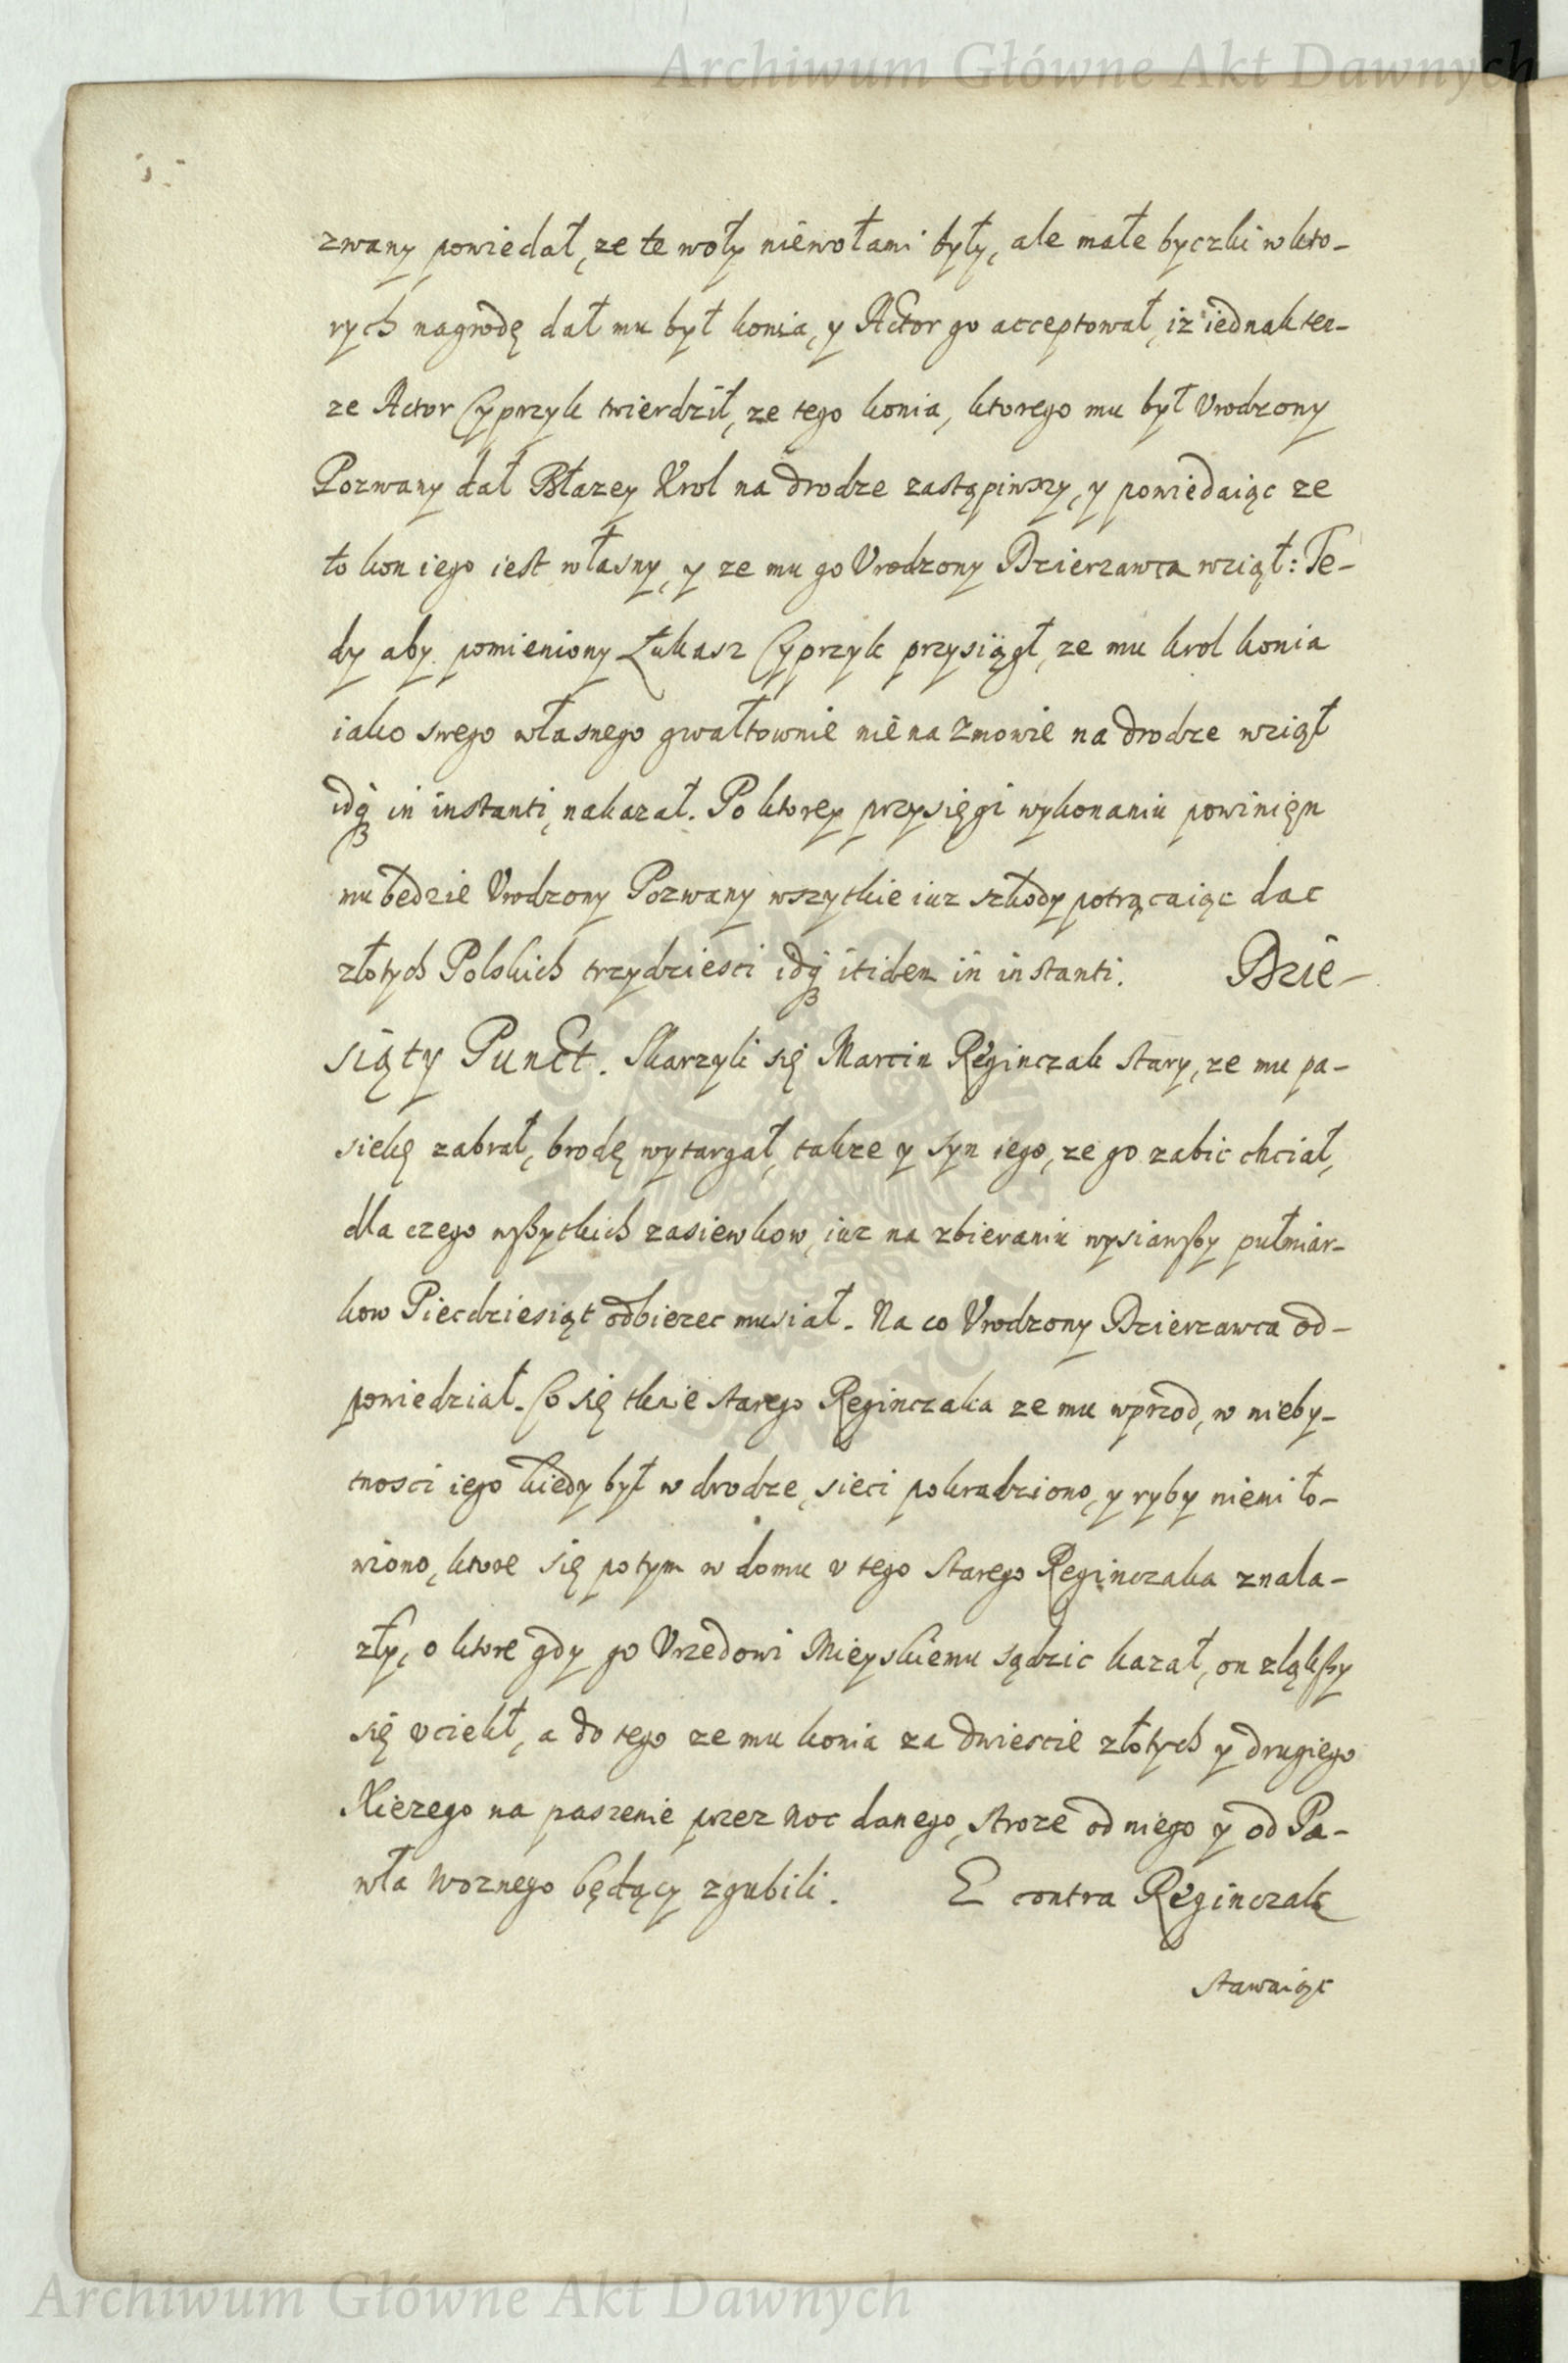 Archiwum Główne Akt Dawnych
zwany powiedał, ze te woły niewołami były, ale małe byczki w kto-
rych nagrodę dał mu był konia, y Actor go acceptował, iz iednak ten-
ze Actor Cyprzyk twierdził, ze tego konia, ktorego mu był Vrodzony
Pozwany dał Błazey Krol na drodze zastąpiwszy, y powiedaiąc ze
to kon iego iest własny, y ze mu go Vrodzony Dzierzawca wziął: Te-
dy aby pomieniony Łukasz Cyprzyk przysiągł, ze mu krol konia
iako swego własnego gwałtownie nie na zmowie na drodze wziął
idq̃ in instanti, nakazał. Po ktorey przysięgi wykonaniu powinien
mu będzie Vrodzony Pozwany wszytkie iuz szkody potrącaiąc dac
złotych Polskich trzydziesci idq̃ itidem in instanti. Dzie-
siąty Punct. Skarzyli się Marcin Reginczak stary, ze mu pa-
siekę zabrał, brodę wytargał, takze y syn iego, ze go zabic chciał,
dla czego wßytkich zasiewkow, iuz na zbieraniu wysiawßy pułmiar-
kow Piecdziesiąt odbiezec musiał. Na co Vrodzony Dzierzawca od-
powiedział. Co się tknie starego Reginczaka ze mu wprzod, w nieby-
tnosci iego kiedy był w drodze, sieci pokradziono, y ryby niemi ło-
wiono, ktore się potym w domu v tego starego Reginczaka znala-
zły, o ktore gdy go Vrzedowi Mieyskiemu sądzic kazał, on zląkßy
się vciekł, a do tego ze mu konia za dwiescie złotych y drugiego
Xiezego na paszenie przez noc danego, stroze od niego y od Pa-
wła Woznego będący zgubili. E contra Reginczak
stawaiąc
Archiwum Główne Akt Dawnych